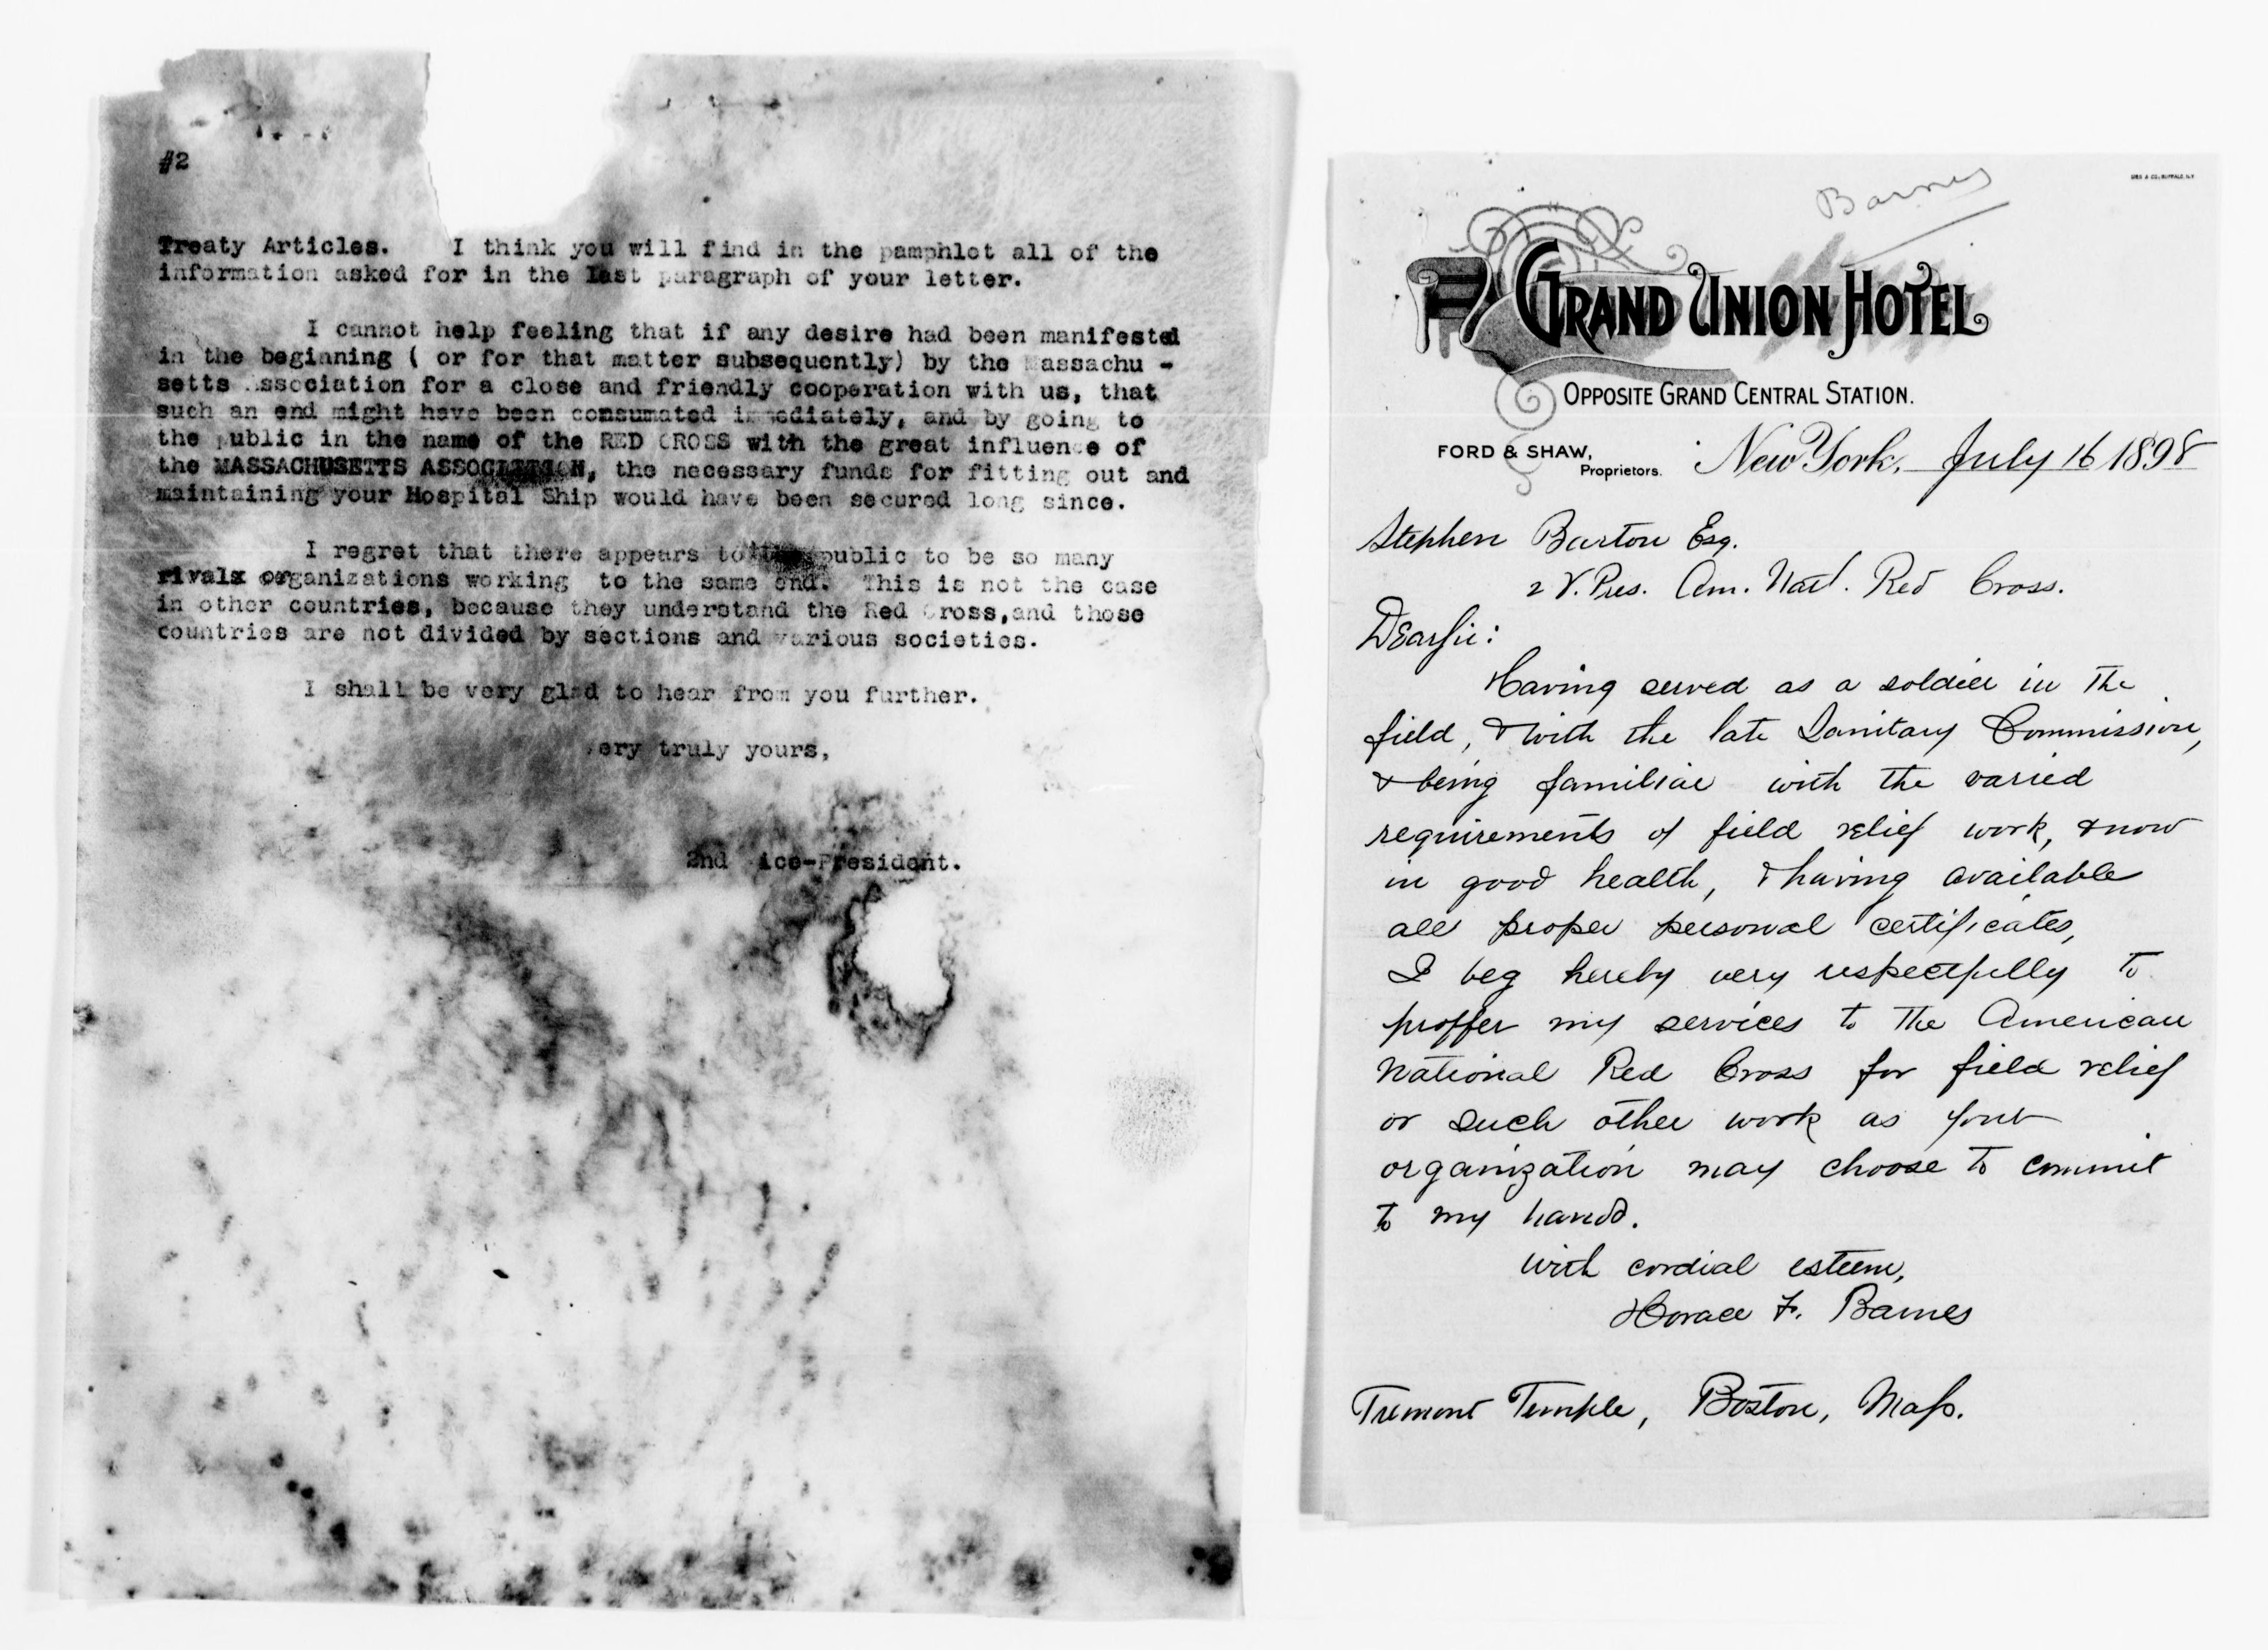 #2
Treaty Articles. I think you will find in the pamphlet all of the
information asked for in the last paragraph of your letter.
I cannot help feeling that if any desire had been manifested
in the beginning ( or for that matter subsequently) by the Massachu -
setts Association for a close and friendly cooperation with us, that
such an end might have been consumated immediately, and by going to
the public in the name of the RED CROSS with the great influence of
the MASSACHUSETTS ASSOCIATION, the necessary funds for fitting out and
maintaining your Hospital Ship would have been secured long since.
I regret that there appears to the public to be so many
rivalx organizations working to the same end. This is not the case
in other countries, because they understand the Red Cross,and those
countries are not divided by sections and various societies.
I shall be very glad to hear from you further.
Very truly yours,
2nd Vice-President.
Barnes
GRAND UNION HOTEL
OPPOSITE GRAND CENTRAL STATION.
FORD & SHAW,
Proprietors.
New York, July 16 1898
Stephen Barton Esq.
2 V. Pres. Am. Natl. Red Cross.
Dear Sir:
Having served as a soldier in the
field, & with the late Sanitary Commission,
& being familiar with the varied
requirements of field relief work, & now
in good health, & having available
all proper personal certificates,
I beg hereby very respectfully to
proffer my services to the American
National Red Cross for field relief
or such other work as your
organization may choose to commit
to my hands.
With cordial esteem,
Horace F. Barnes
Tremont Temple, Boston, Mass.